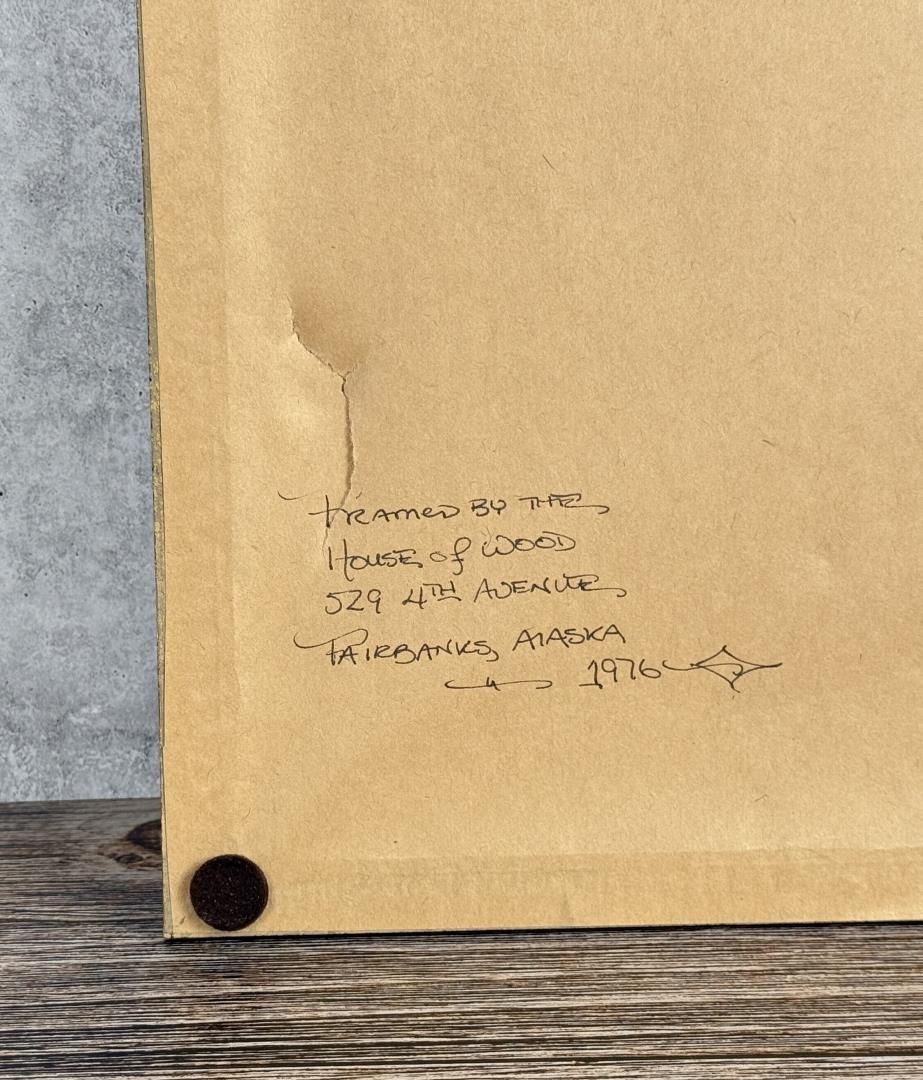 FRAMED BY THE
HOUSE of WOOD
529 4TH AVENUE
FAIRBANKS, ALASKA
1976